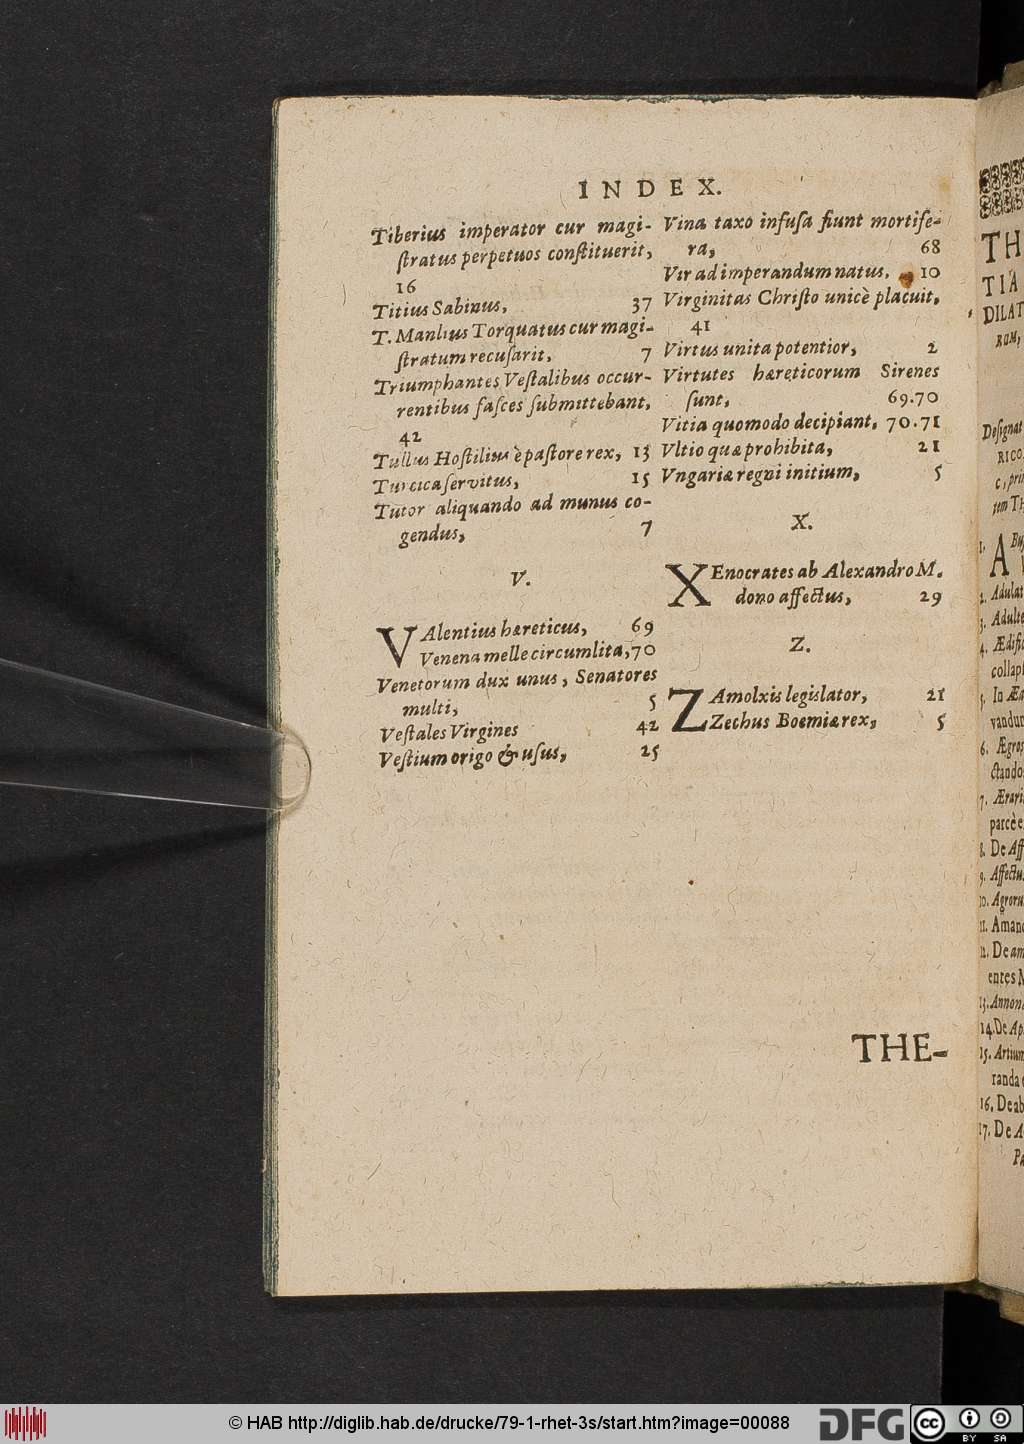 INDEX.
Tiberius imperator cur magi-
ſtratus perpetuos conſtituerit,
16
Titius Sabinus, 37
T. Manlius Torquatus cur magi-
ſtratum recuſarit, 7
Triumphantes Veſtalibus occur-
rentibus faſces ſubmittebant,
42
Tullus Hoſtilius è paſtore rex, 13
Turcica ſervitus, 15
Tutor aliquando ad munus co-
gendus, 7
V.
VAlentius hæreticus, 69
Venena melle circumlita, 70
Venetorum dux unus, Senatores
multi, 5
Veſtales Virgines 42
Veſtium origo & uſus, 25
Vina taxo infuſa fiunt mortife-
ra, 68
Vir ad imperandum natus, 10
Virginitas Chriſto unicè placuit,
41
Virtus unita potentior, 2
Virtutes hæreticorum Sirenes
ſunt, 69.70
Vitia quomodo decipiant, 70.71
Vltio quæ prohibita, 21
Vngariæ regni initium, 5
X.
XEnocrates ab Alexandro M.
dono affectus, 29
Z.
ZAmolxis legislator, 21
Zechus Boemiæ rex, 5
THE-
TH
TIA
DILAT
RUM,
Deſignat
RICO
C, pri
jem TH
1. A
2. Adulat
3. Adulte
4. Ædific
collapſ
5. In Æ
vandum
6. Ægro
ctando
7. Ærari
parcè e
8. De Aff
9. Affectu
10. Agroru
11. Amand
12. De am
entes
13. Annon
14. De Ap
15. Artium
randa
16. De ab
17. De A
© HAB http://diglib.hab.de/drucke/79-1-rhet-3s/start.htm?image=00088
DFG
cc
BY SA